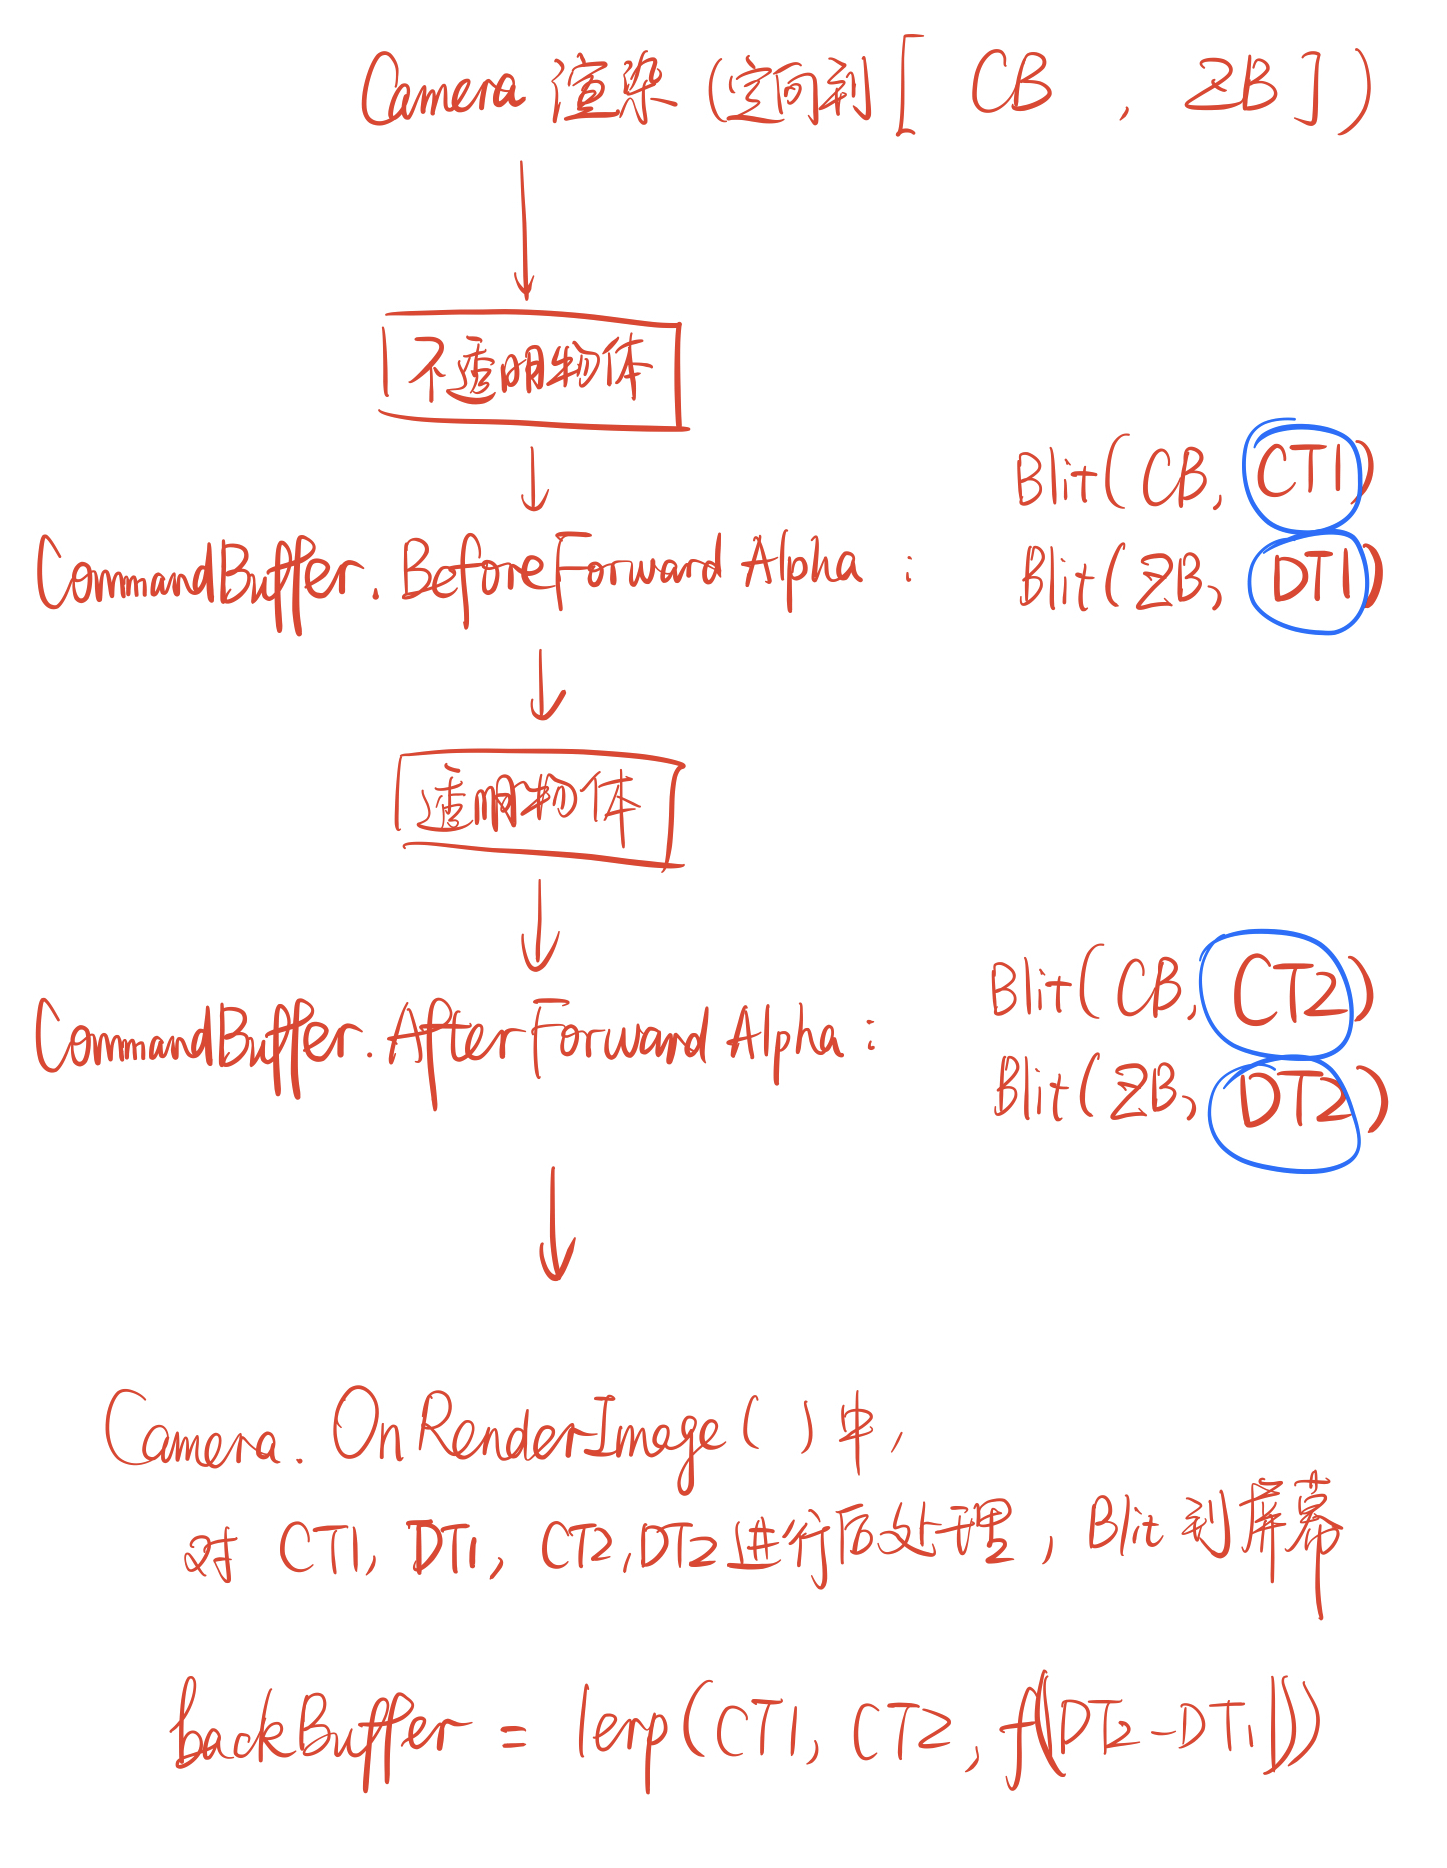 Camera 渲染 (定向到[ CB , ZB ])
不透明物体
Blit(CB, CT1)
CommandBuffer.BeforeForwardAlpha :
Blit(ZB, DT1)
透明物体
Blit(CB, CT2)
CommandBuffer.AfterForwardAlpha :
Blit(ZB, DT2)
Camera.OnRenderImage()中,
对 CT1, DT1, CT2, DT2进行后处理, Blit到屏幕
backBuffer = lerp(CT1, CT2, f(|DT2-DT1|))